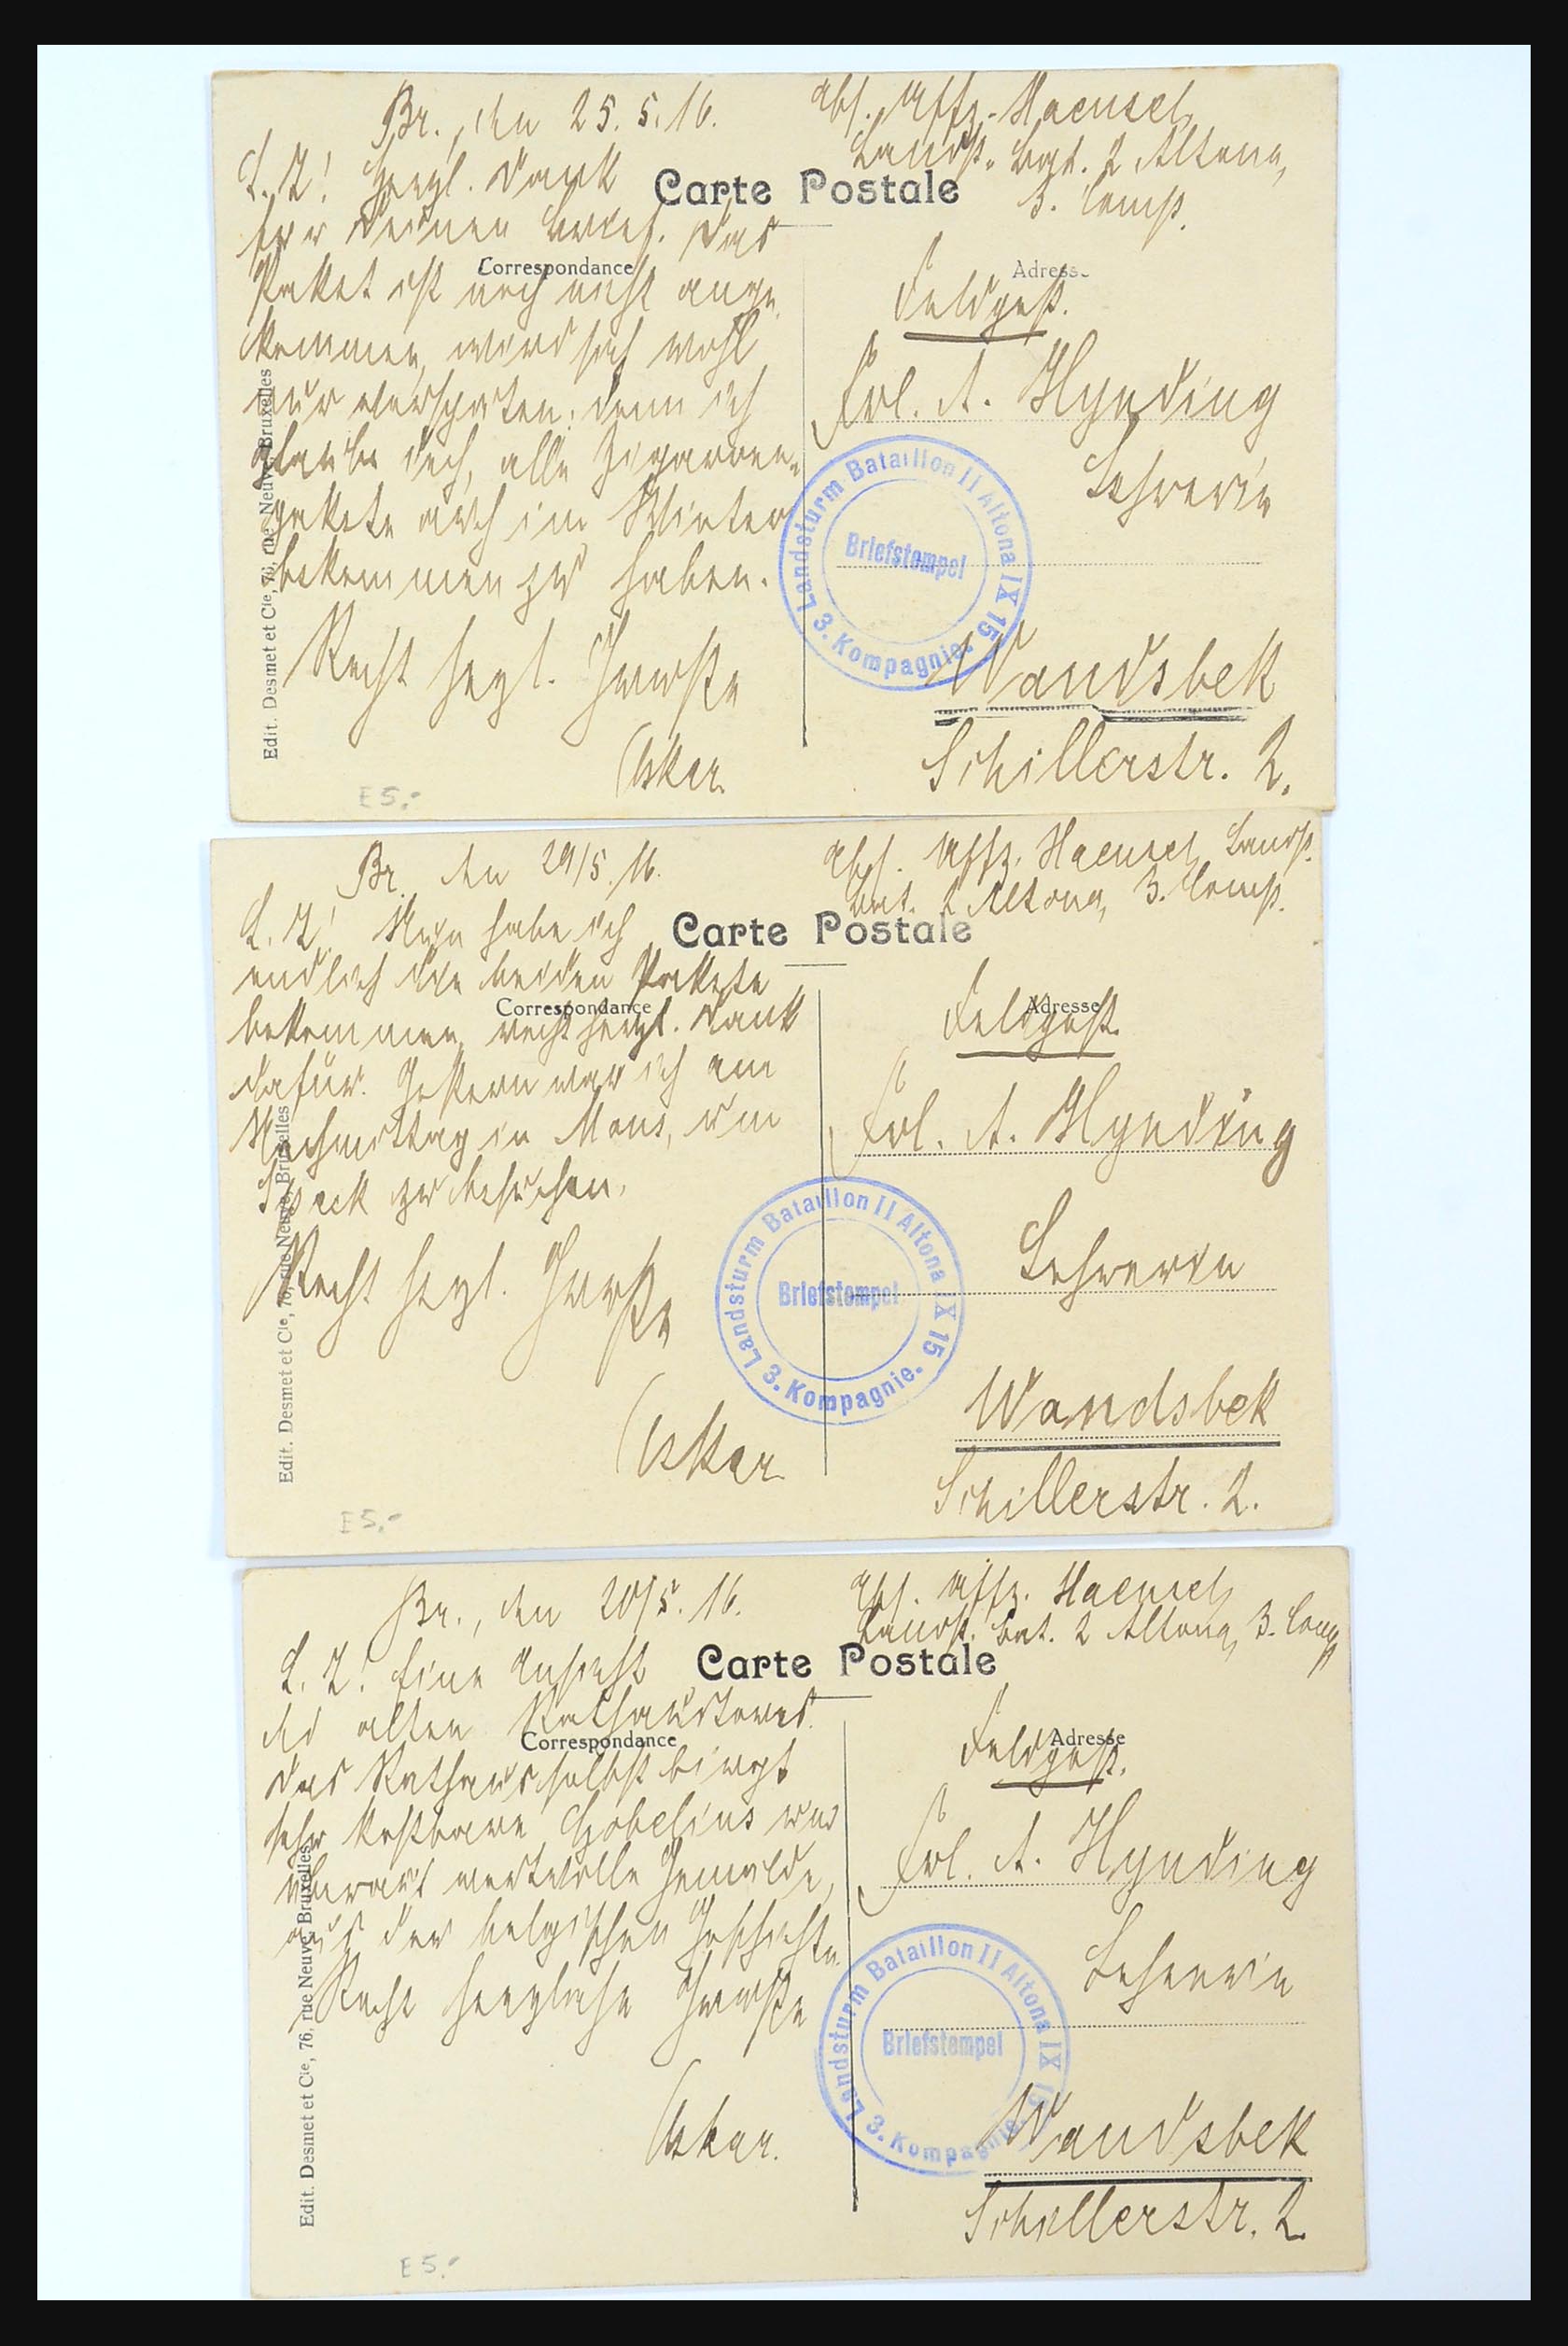 Br., den 25.5.16.
L. T.! Herzl. Dank
für Deinen Brief. Das
Paket ist noch nicht ange-
kommen, wird sich wohl
nur verspäten; denn ich
glaube doch, alle Zigarren-
pakete auch im Winter
bekommen zu haben.
Recht herzl. Grüße
Oskar.
Abs. Uffz. Haensel,
Landst. Bat. 2 Altona,
3. Comp.
Carte Postale
Correspondance
Adresse
Feldpost.
Frl. A. Hynding
Lehrerin
Wandsbek
Schillerstr. 2.
Landsturm Bataillon II Altona IX 15
Briefstempel
3. Kompagnie.
Edit. Desmet et Cie, 76, rue Neuve, Bruxelles
E 5.-
Br., den 29/5.16.
L. T.! Nun habe ich
endlich die beiden Pakete
bekommen, recht herzl. Dank
dafür. Gestern war ich am
Nachmittag in Mons, um
zu besuchen.
Recht herzl. Grüße
Oskar
Abs. Uffz. Haensel, Landst.
Bat. 2 Altona, 3. Comp.
Carte Postale
Correspondance
Adresse
Feldpost.
Frl. A. Hynding
Lehrerin
Wandsbek
Schillerstr. 2.
Landsturm Bataillon II Altona IX 15
Briefstempel
3. Kompagnie.
Edit. Desmet et Cie, 76, rue Neuve, Bruxelles
E 5.-
Br., den 20/5.16.
L. T.! Eine Ansicht
des alten
Das Rathaus selbst birgt
sehr kostbare Gobelins und
überaus wertvolle Gemälde,
aus der belgischen Geschichte.
Recht herzliche Grüße
Oskar.
Abs. Uffz. Haensel,
Landst. Bat. 2 Altona, 3. Comp
Carte Postale
Correspondance
Adresse
Feldpost.
Frl. A. Hynding
Lehrerin
Wandsbek
Schillerstr. 2.
Landsturm Bataillon II Altona IX 15
Briefstempel
3. Kompagnie.
Edit. Desmet et Cie, 76, rue Neuve, Bruxelles
E 5.-